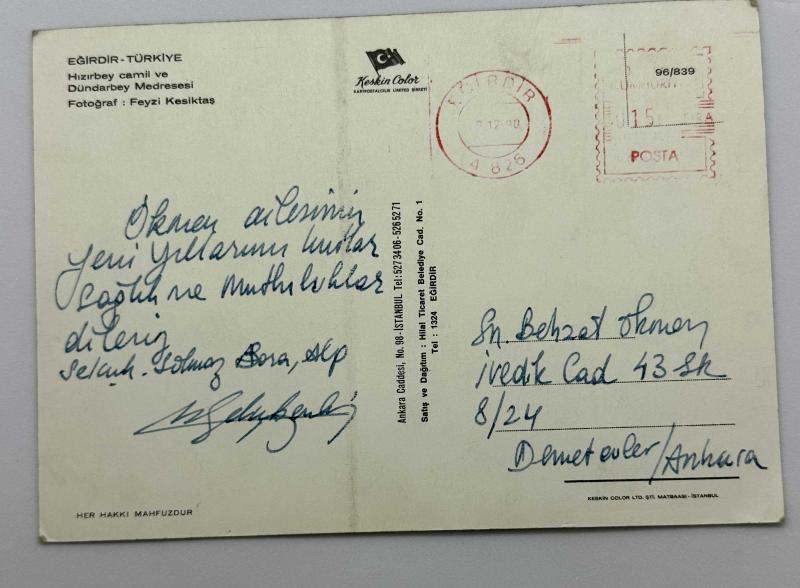 EĞİRDİR-TÜRKİYE
Hızırbey camil ve
Dündarbey Medresesi
Fotoğraf : Feyzi Kesiktaş
Keskin Color
KARTPOSTALCILIK LIMITED ŞİRKETİ
EĞİRDİR
12.90
4 826
96/839
15
POSTA
Ökmen ailesinin
yeni yıllarını kutlar
sağlık ve mutluluklar
dileriz
Selçuk. Solmaz Bora, Alp
Ankara Caddesi, No. 98 - İSTANBUL Tel: 5273406-5265271
Satış ve Dağıtım : Hilal Ticaret Belediye Cad. No. 1
Tel : 1324 EĞİRDİR
Sn. Behzat Ökmen
İvedik Cad 43 Sk
8/24
Demetevler/Ankara
HER HAKKI MAHFUZDUR
KESKİN COLOR LTD. ŞTİ. MATBAASI - İSTANBUL